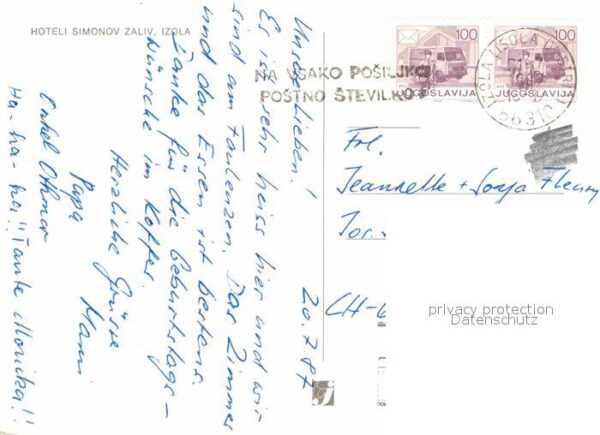 HOTELI SIMONOV ZALIV, IZOLA
20.7.87
Unsere Lieben!
Es ist sehr heiss hier und wir
sind am Faulenzen. Das Zimmer
und das Essen ist bestens.
Danke für die Geburtstags-
wünsche im Koffer.
Herzliche Grüsse
Papa Mami
Onkel Othmar
Ha-ha-ha!! Tante Monika!!
100 100
JUGOSLAVIJA JUGOSLAVIJA
NA VSAKO POŠILJKO
POŠTNO ŠTEVILKO!
IZOLA ISOLA D'ISTRIA
Frl.
Jeannette + Sonja Fleury
CH-
privacy protection
Datenschutz